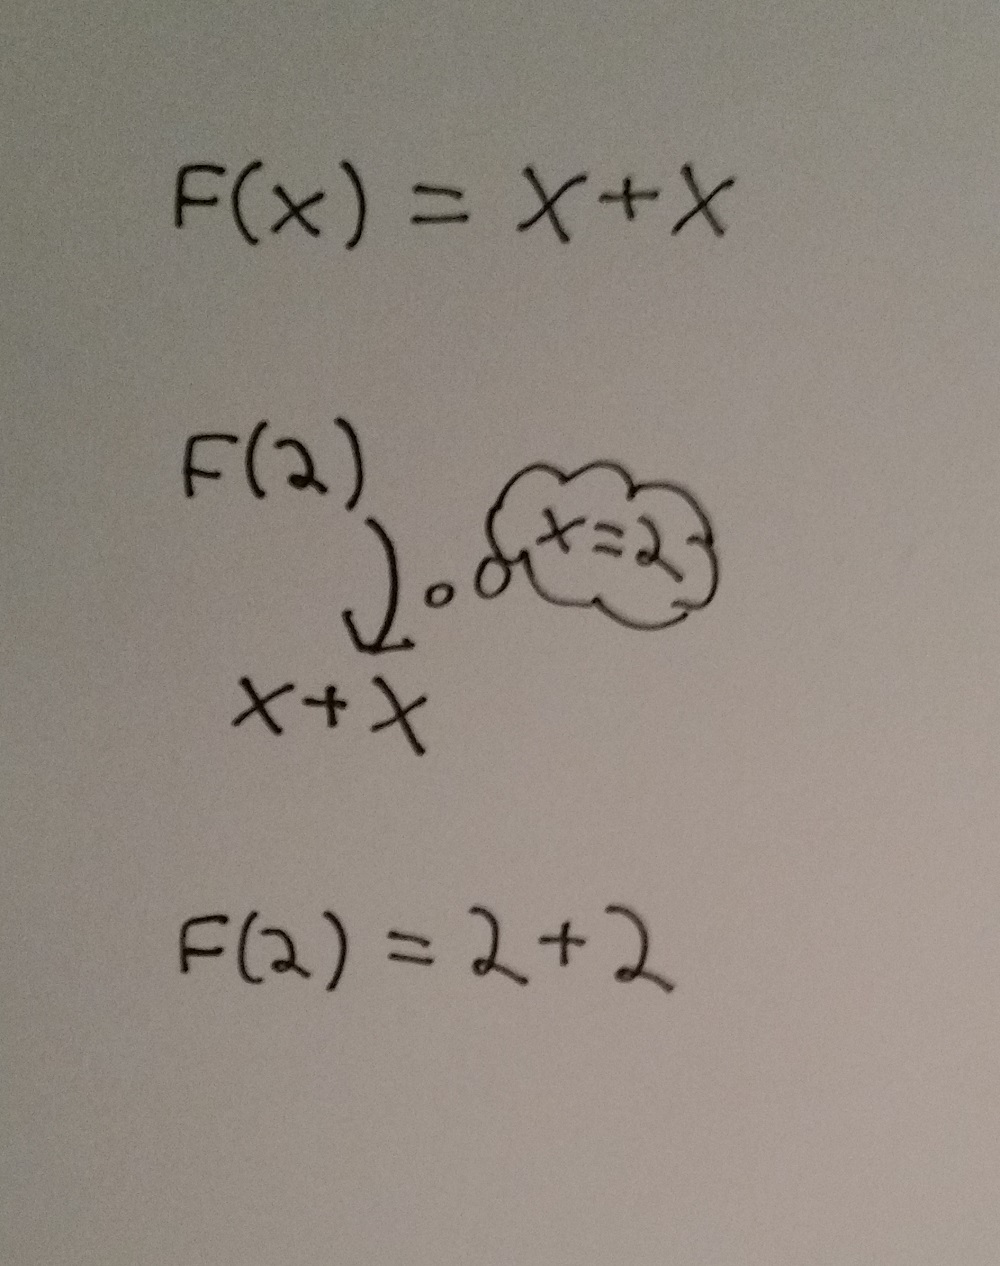 F(x) = x+x
F(2)
x=2
x+x
F(2) = 2+2